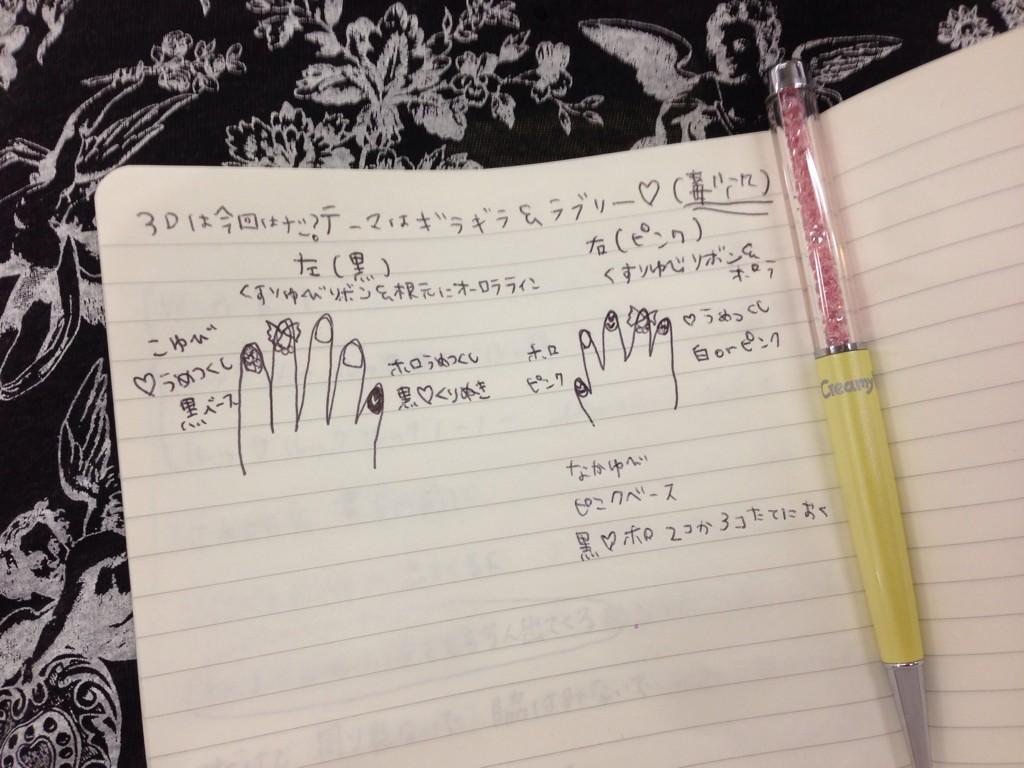 3Dは今回はナゴ?テーマはギラギラ&ラブリー♡(毒どく)
左(黒)
くすりゆびリボン&根元にオーロラライン
こゆび
♡うめつくし
黒ベース
ホロうめつくし
黒♡くりぬき
右(ピンク)
くすりゆびリボン&
ホロ
ピンク
♡うめつくし
白orピンク
なかゆび
ピンクベース
黒♡ホロ 2コか3コたてにおく
Creamy